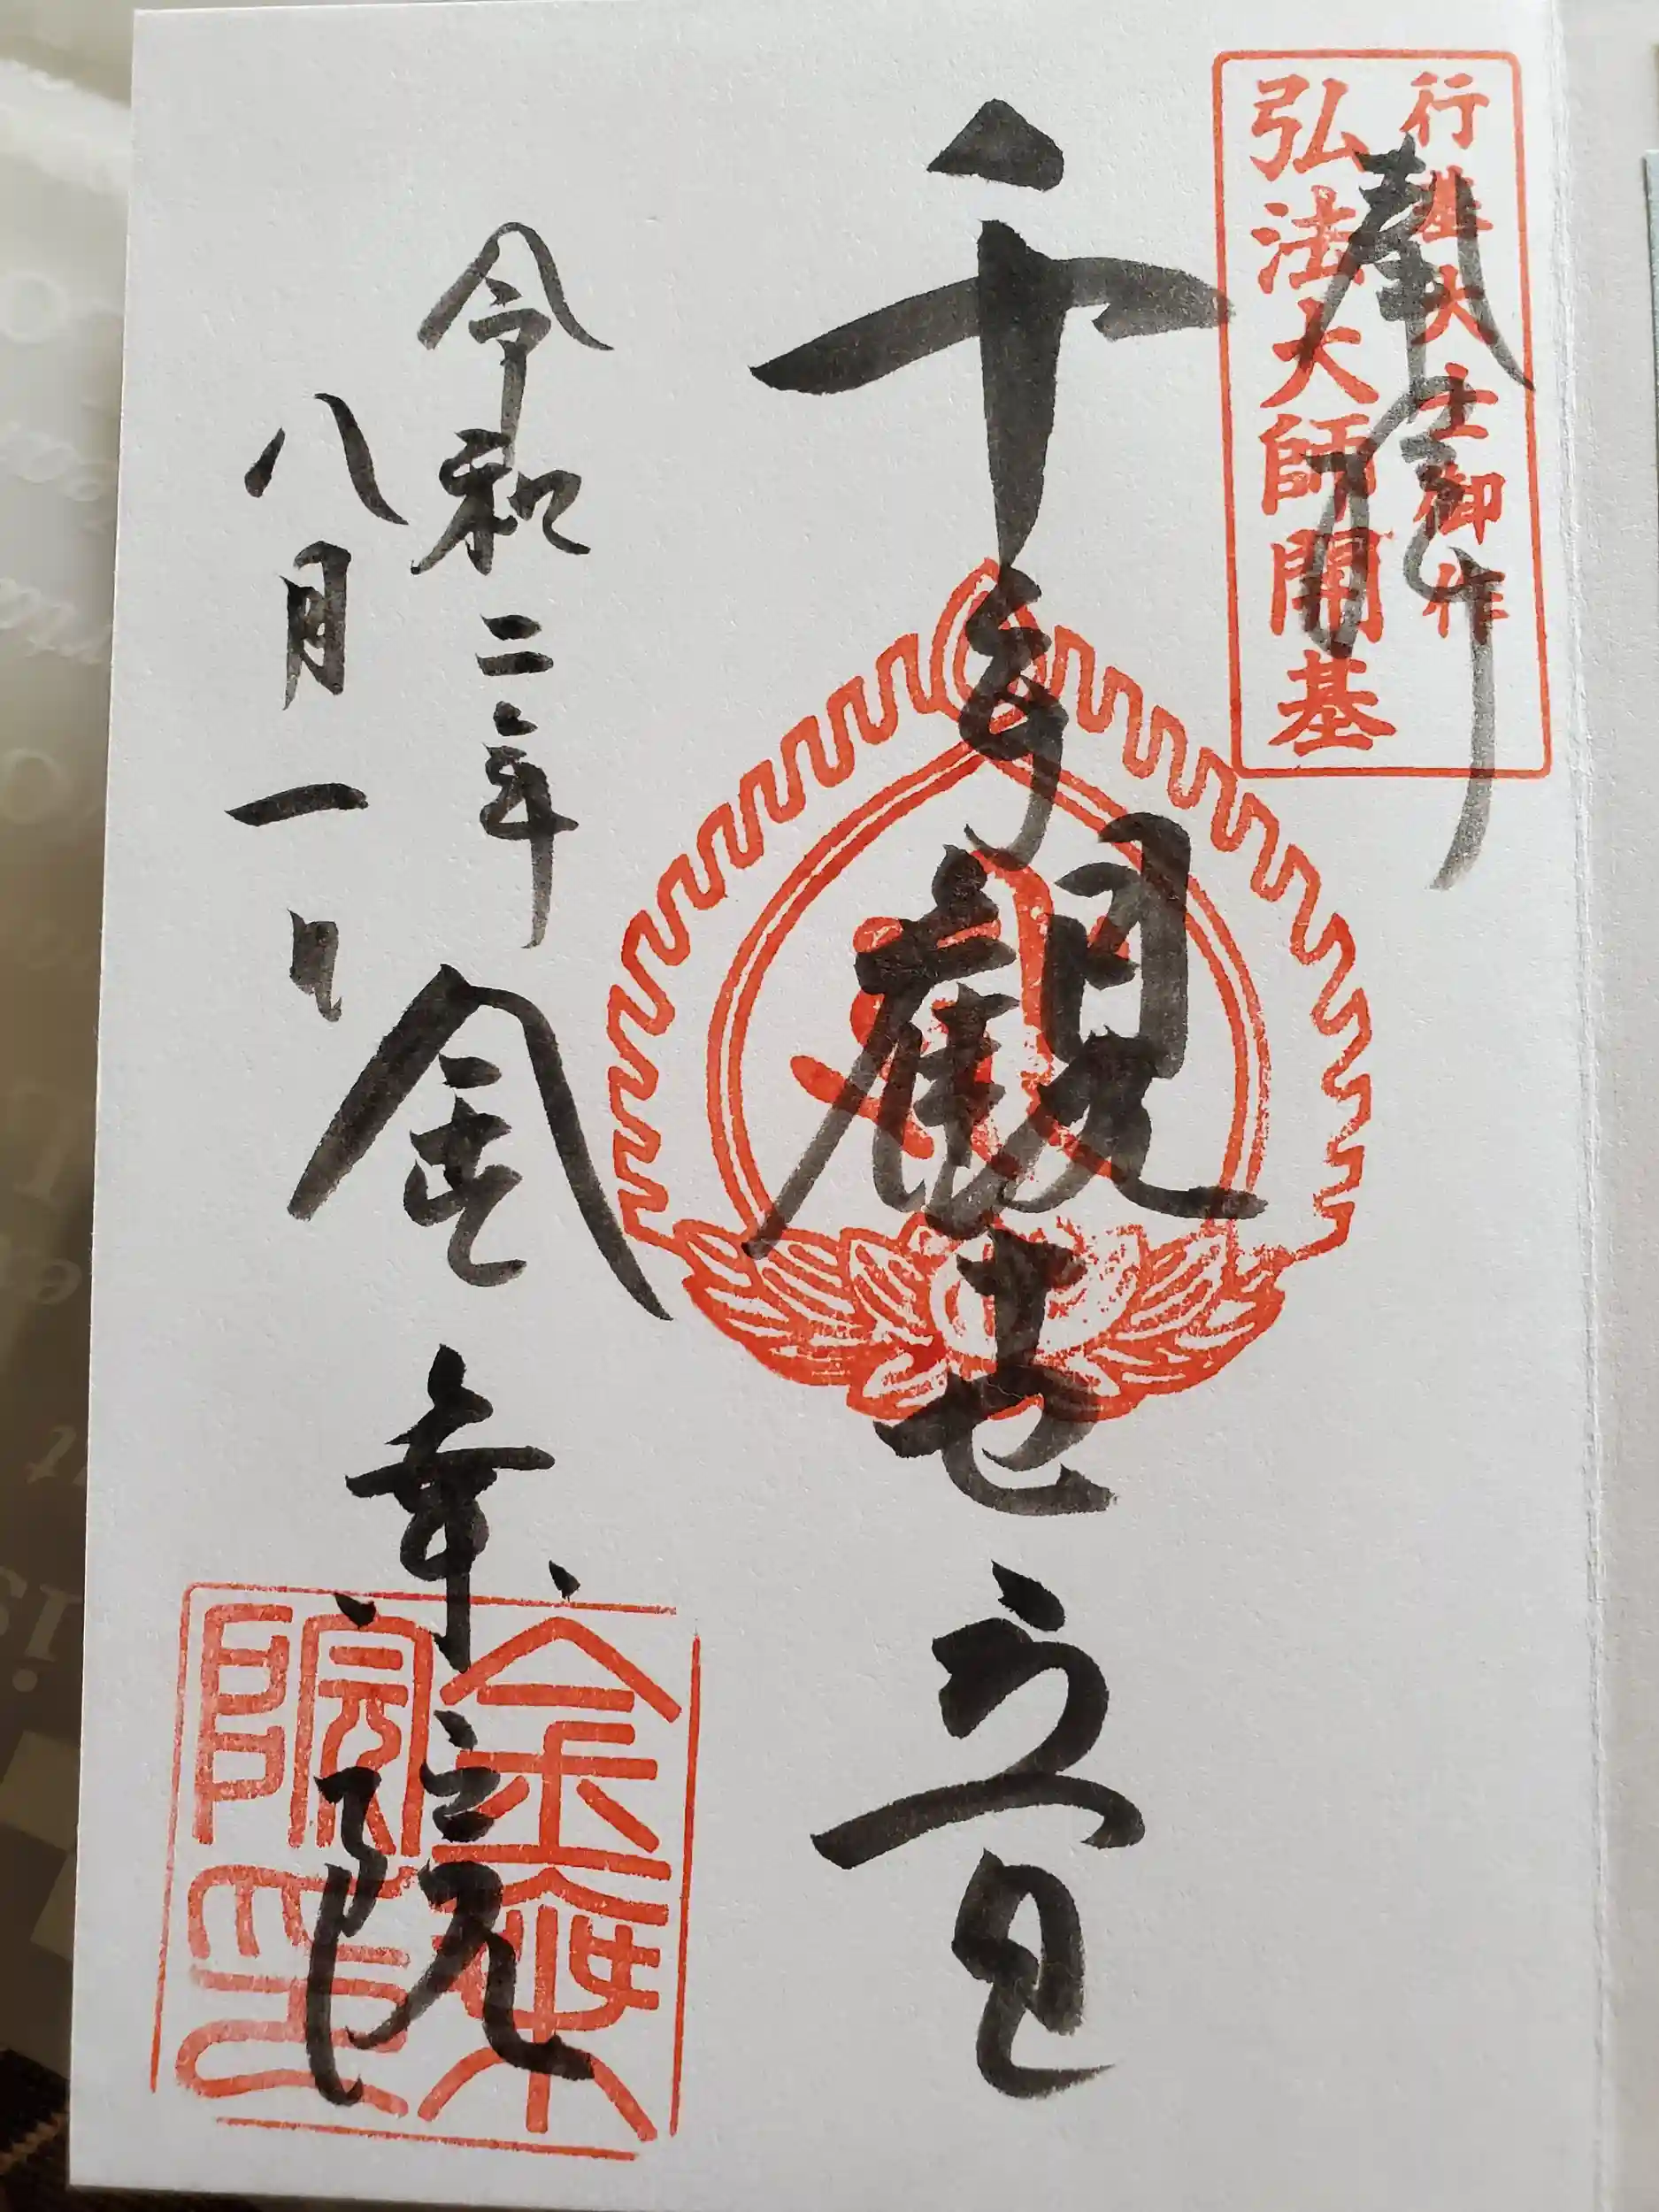 行基大士御作
弘法大師開基
奉拝
千手觀世音
令和二年
八月一日
金乗院
金乗院印